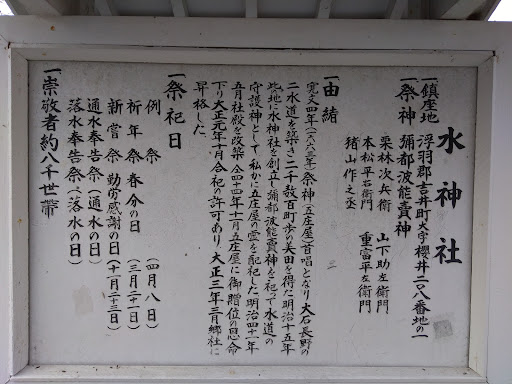 水神社
一鎮座地 浮羽郡吉井町大字櫻井二〇八番地の一
一祭神 彌都波能賣神
栗林次兵衛 山下助左衛門
本松平右衛門 重富平左衛門
猪山作之丞
一由緒
寛文四年(一六六三年)祭神(五庄屋)首唱となり大石長野の
二水道を築き二千数百町歩の美田を得た明治十五年
此地に水神社を創立し彌都波能賣神を祀つて水道の
守護神として私かに五庄屋の霊を配祀した明治四十一年
五月社殿を改築 仝四十四年十一月五庄屋に御贈位の恩命
下り大正元年十月合祀の許可あり、大正三年三月郷社に
昇格した
一祭祀日
例祭 (四月八日)
祈年祭 春分の日 (三月二十一日)
新嘗祭 勤労感謝の日(十一月二十三日)
通水奉告祭(通水の日)
落水奉告祭(落水の日)
一崇敬者約八千世帯